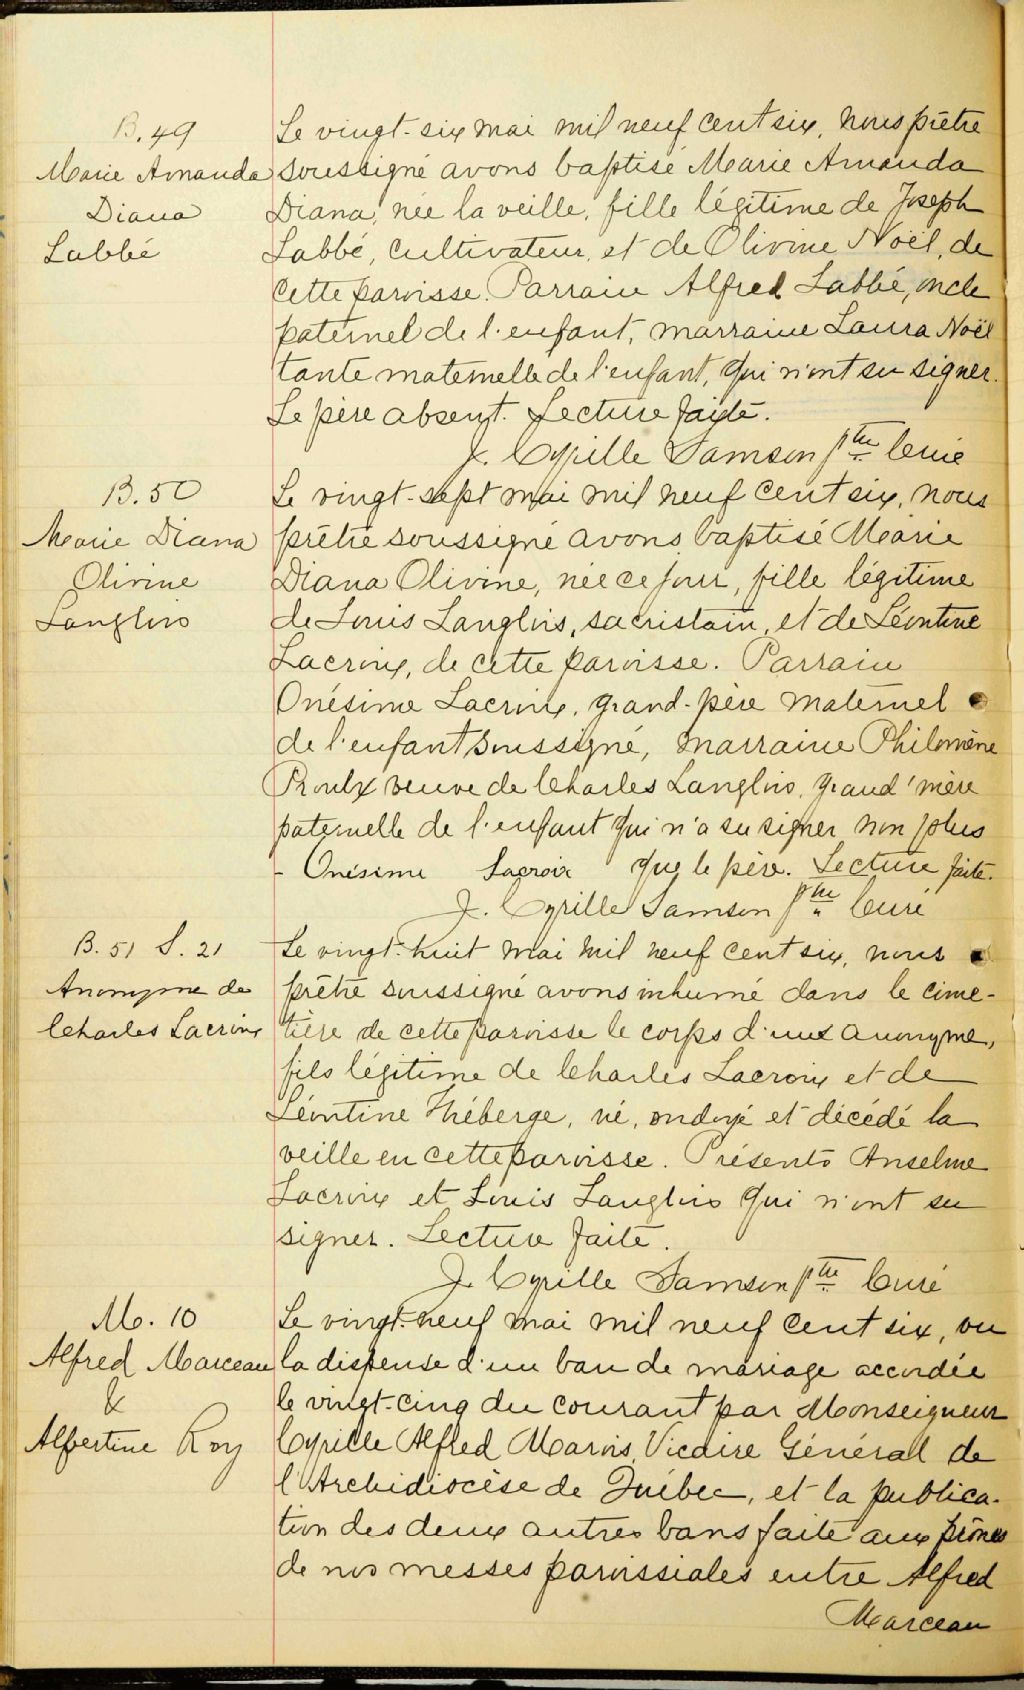 B. 49
Marie Amanda
Diana
Labbé
Le vingt-six mai mil neuf cent six, nous prêtre
soussigné avons baptisé Marie Amanda
Diana, née la veille, fille légitime de Joseph
Labbé, cultivateur, et de Olivine Noël, de
cette paroisse. Parrain Alfred Labbé, oncle
paternel de l'enfant, marraine Laura Noël
tante maternelle de l'enfant, qui n'ont su signer.
Le père absent. Lecture faite.
J. Cyrille Samson ptre Curé
B. 50
Marie Diana
Olivine
Langlois
Le vingt-sept mai mil neuf cent six, nous
prêtre soussigné avons baptisé Marie
Diana Olivine, née ce jour, fille légitime
de Louis Langlois, sacristain, et de Léontine
Lacroix, de cette paroisse. Parrain
Onésime Lacroix, grand-père maternel
de l'enfant soussigné, marraine Philomène
Proulx veuve de Charles Langlois, grand'mère
paternelle de l'enfant qui n'a su signer non plus
- Onésime Lacroix que le père. Lecture faite.
J. Cyrille Samson ptre Curé
B. 51 S. 21
Anonyme de
Charles Lacroix
Le vingt-huit mai mil neuf cent six, nous
prêtre soussigné avons inhumé dans le cime-
tière de cette paroisse le corps d'un anonyme,
fils légitime de Charles Lacroix et de
Léontine Théberge, né, ondoyé et décédé la
veille en cette paroisse. Présents Anselme
Lacroix et Louis Langlois qui n'ont su
signer. Lecture faite.
J. Cyrille Samson ptre Curé
M. 10
Alfred Marceau
&
Albertine Roy
Le vingt-neuf mai mil neuf cent six, vu
la dispense d'un ban de mariage accordée
le vingt-cinq du courant par Monseigneur
Cyrille Alfred Marois, Vicaire Général de
l'Archidiocèse de Québec, et la publica-
tion des deux autres bans faite aux prônes
de nos messes paroissiales entre Alfred
Marceau